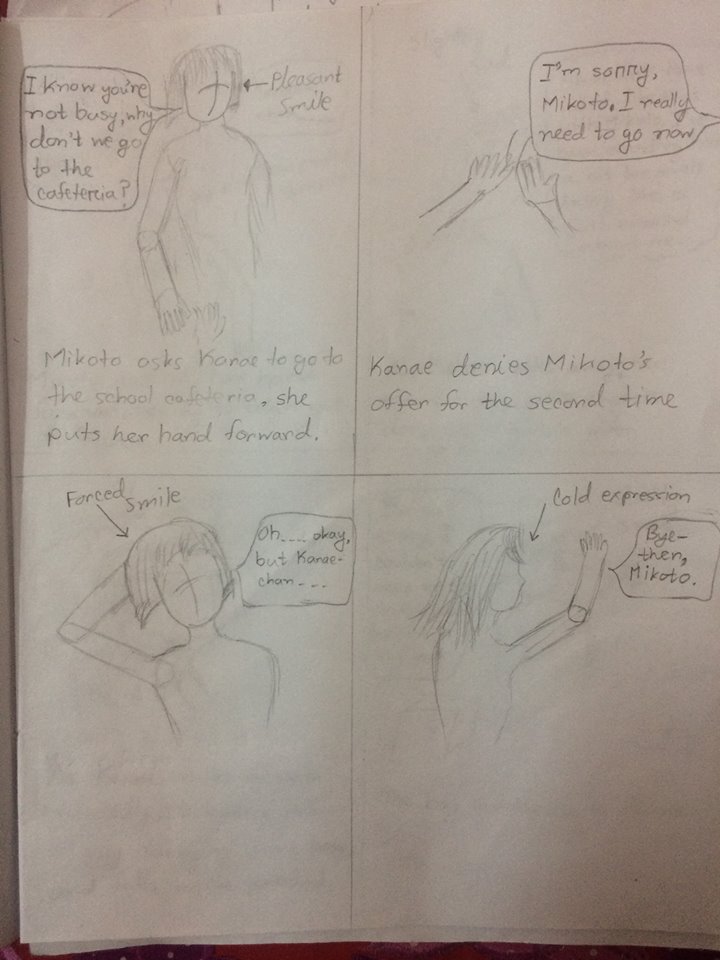 I know you're
not busy, why
don't we go
to the
cafetercia?
Pleasant
smile
Mikoto asks Kanae to go to
the school cafeteria, she
puts her hand forward.
I'm sorry,
Mikoto. I really
need to go now
Kanae denies Mikoto's
offer for the second time
Forced
smile
Oh.... okay,
but Kanae-
chan ---
Cold expression
Bye-
then,
Mikoto.